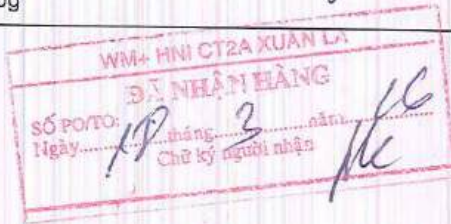 WM+ HNI CT2A XUÂN LA
ĐÃ NHẬN HÀNG
SỐ PO/TO:
Ngày 18 tháng 3 năm 26
Chữ ký người nhận